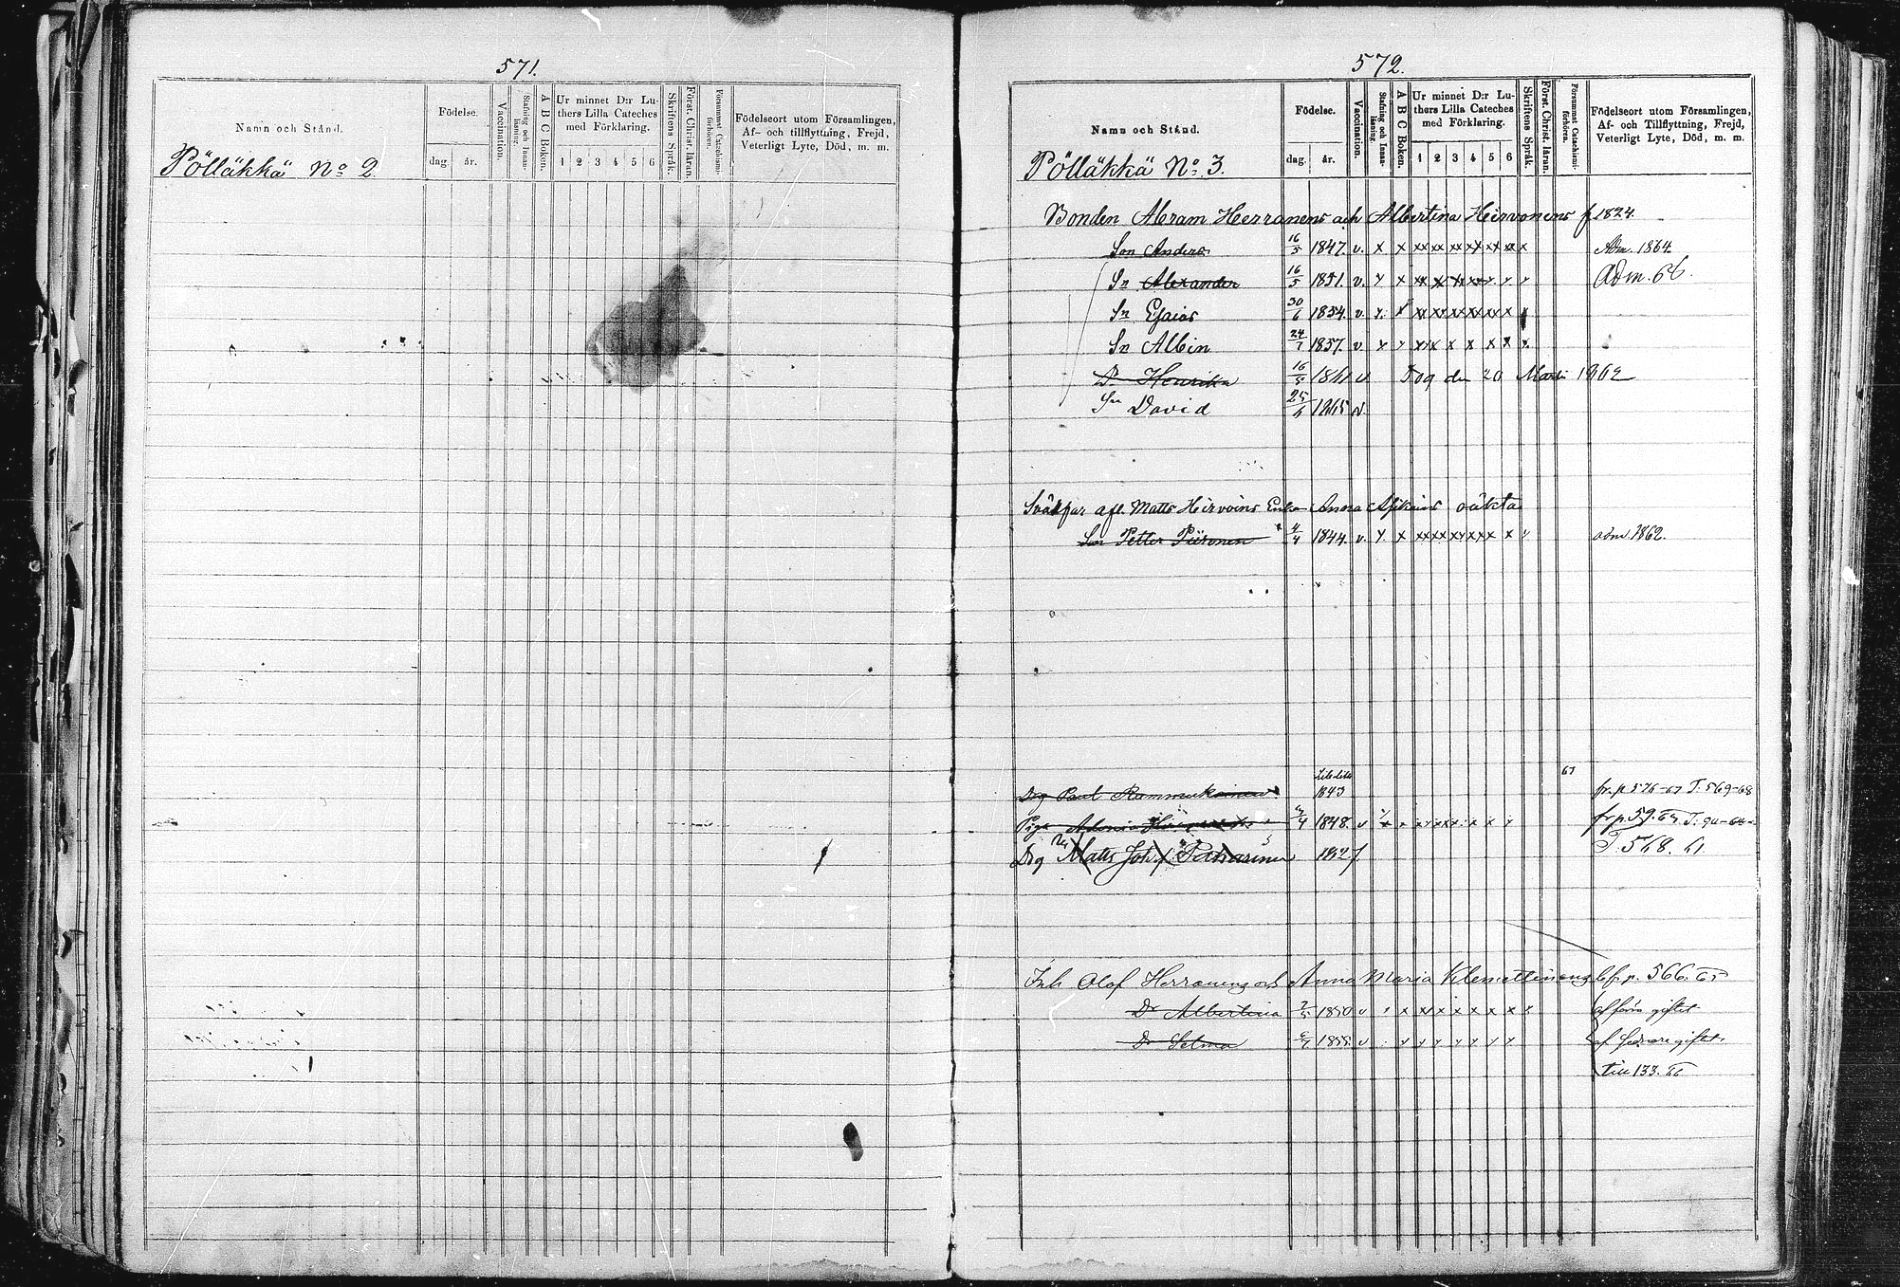 571.
Namn och Stånd.
Födelse.
dag. år.
Vaccination.
Stafning och Innan-läsning.
A B C Boken.
Ur minnet D:r Lu-
thers Lilla Cateches
med Förklaring.
1 2 3 4 5 6
Skriftens Språk.
Först. Christ. läran.
Försummat Catechismi-förhören.
Födelseort utom Församlingen,
Af- och tillflyttning, Frejd,
Veterligt Lyte, Död, m. m.
Pölläkkä No 2
572.
Namn och Stånd.
Födelse.
dag. år.
Vaccination.
Stafning och Innan-läsning.
A B C Boken.
Ur minnet D:r Lu-
thers Lilla Cateches
med Förklaring.
1 2 3 4 5 6
Skriftens Språk.
Först. Christ. läran.
Försummat Catechismi-förhören.
Födelseort utom Församlingen,
Af- och Tillflyttning, Frejd,
Veterligt Lyte, Död, m. m.
Pölläkkä No 3.
Bonden Abram Herranens och Albertina Hirvonens f 1824.
Son Anders 16/5 1847. v. x x xx xx xx xx xx xx x Adm. 1864
Sn Alexander 16/5 1851. v. Adm. 66.
Sn Esaias 30/6 1854. v.
Sn Albin 24/7 1857. v
Dr Henrika 16/5 1861 v Dog den 20 Marti 1962
Sn David 25/6 1865 v.
Svärfar afl. Matts Hirvoins Enka Anna Asikains oäkta
Son Petter Piironen 4/4 1844. v. adm. 1862.
Drg Paul Rammukainen 1843 67 fr. p 576-67 T. 569-68
Piga 1848. v fr p. 59.
Drg Matts Joh. 1827. T. 568. 61.
Inh Olof Herranens och Anna Maria Klemettinens bf. p. 566. 65
Dr Albertina 2/5 1850 v af förra giftet
Dr Selma 1855 v af giftet
till 133. 66